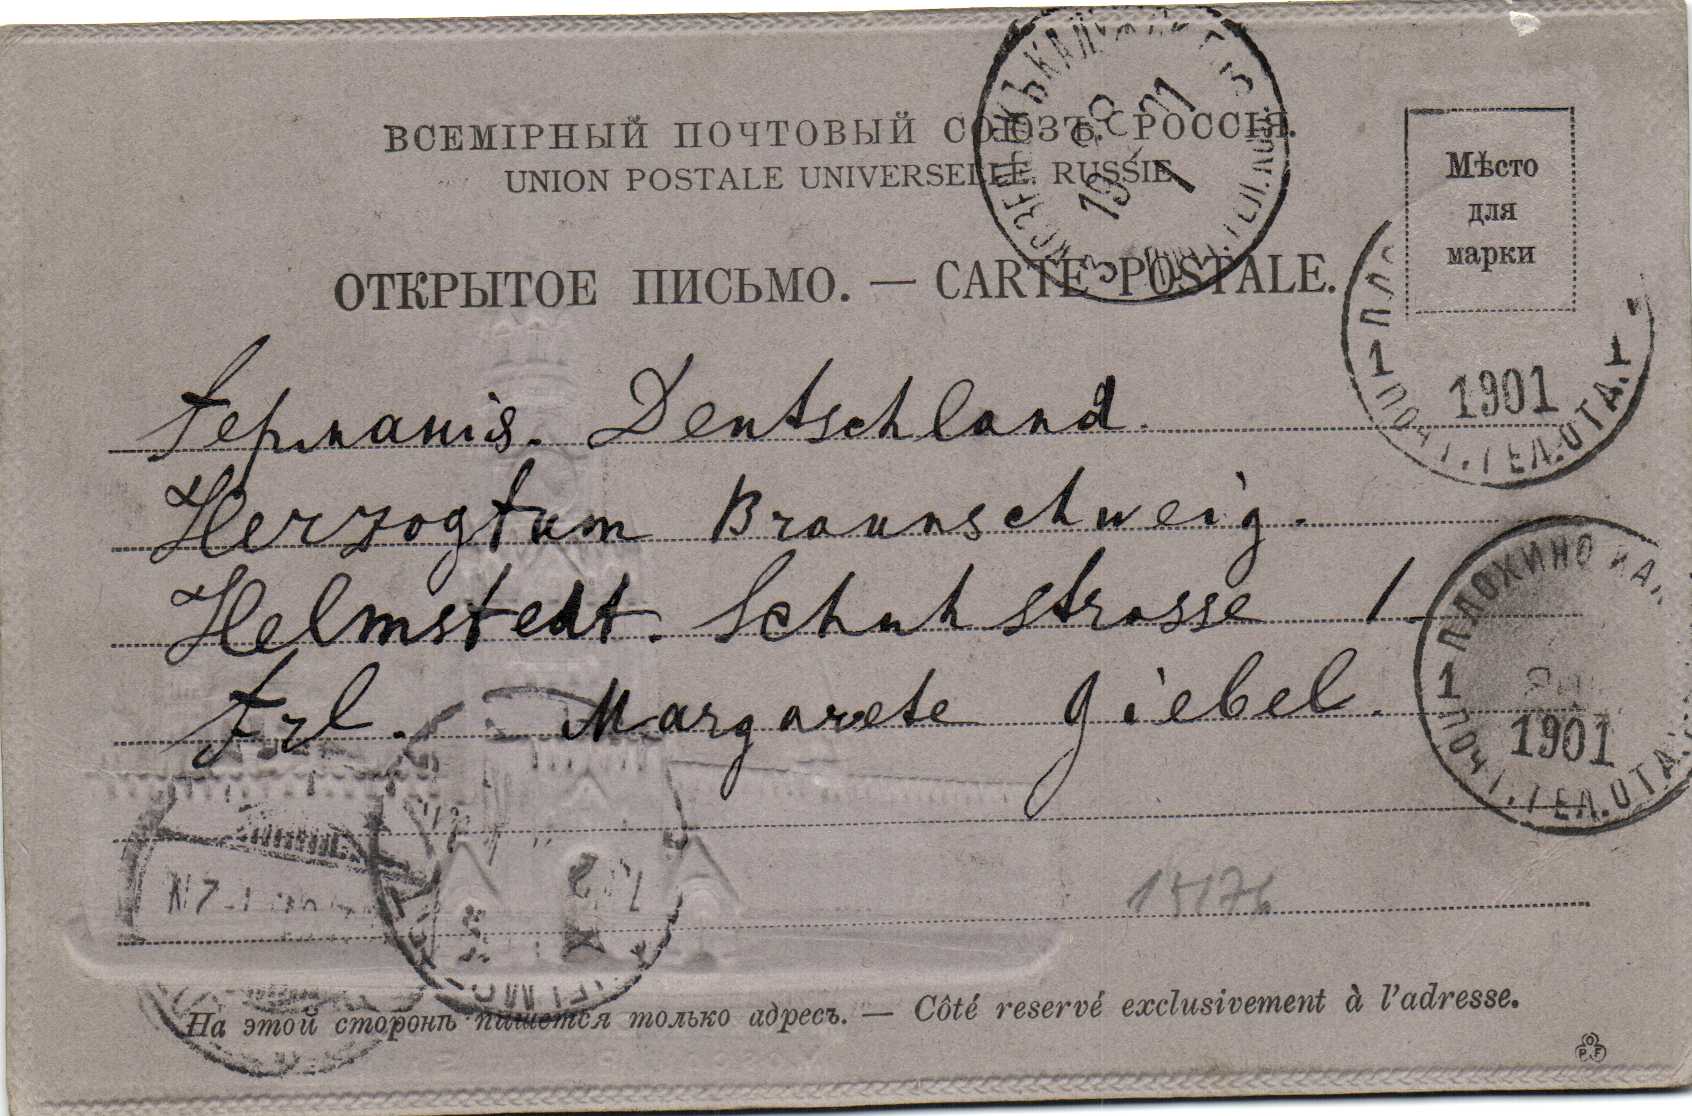 ВСЕМІРНЫЙ ПОЧТОВЫЙ СОЮЗЪ. РОССІЯ.
UNION POSTALE UNIVERSELLE. RUSSIE
ОТКРЫТОЕ ПИСЬМО. — CARTE POSTALE.
Мѣсто
для
марки
1901
1 1
ПОЧТ. ТЕЛ. ОТД.
Германія. Deutschland.
Herzogtum Braunschweig.
Helmstedt. Schuhstrasse 1
Frl. Margarete Giebel.
ПЛОХИНО
1
1901
ПОЧТ. ТЕЛ. ОТД.
15176
На этой сторонѣ пишется только адресъ. — Côté reservé exclusivement à l'adresse.